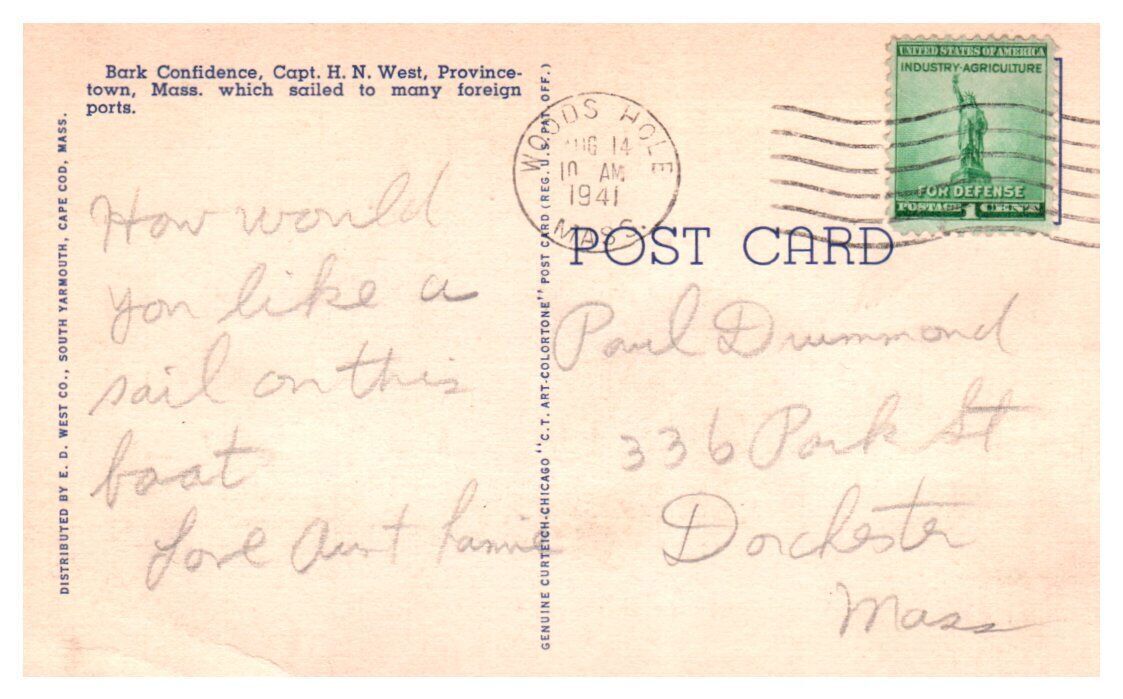 Bark Confidence, Capt. H. N. West, Province-
town, Mass. which sailed to many foreign
ports.
DISTRIBUTED BY E. D. WEST CO., SOUTH YARMOUTH, CAPE COD, MASS.
How would
you like a
sail on this
boat
Love Aunt
GENUINE CURTEICH-CHICAGO "C.T. ART-COLORTONE" POST CARD (REG. U.S. PAT. OFF.)
WOODS HOLE
AUG 14
10 AM
1941
MASS.
UNITED STATES OF AMERICA
INDUSTRY·AGRICULTURE
FOR DEFENSE
POSTAGE 1 CENT
POST CARD
Paul Drummond
336 Park St
Dorchester
Mass